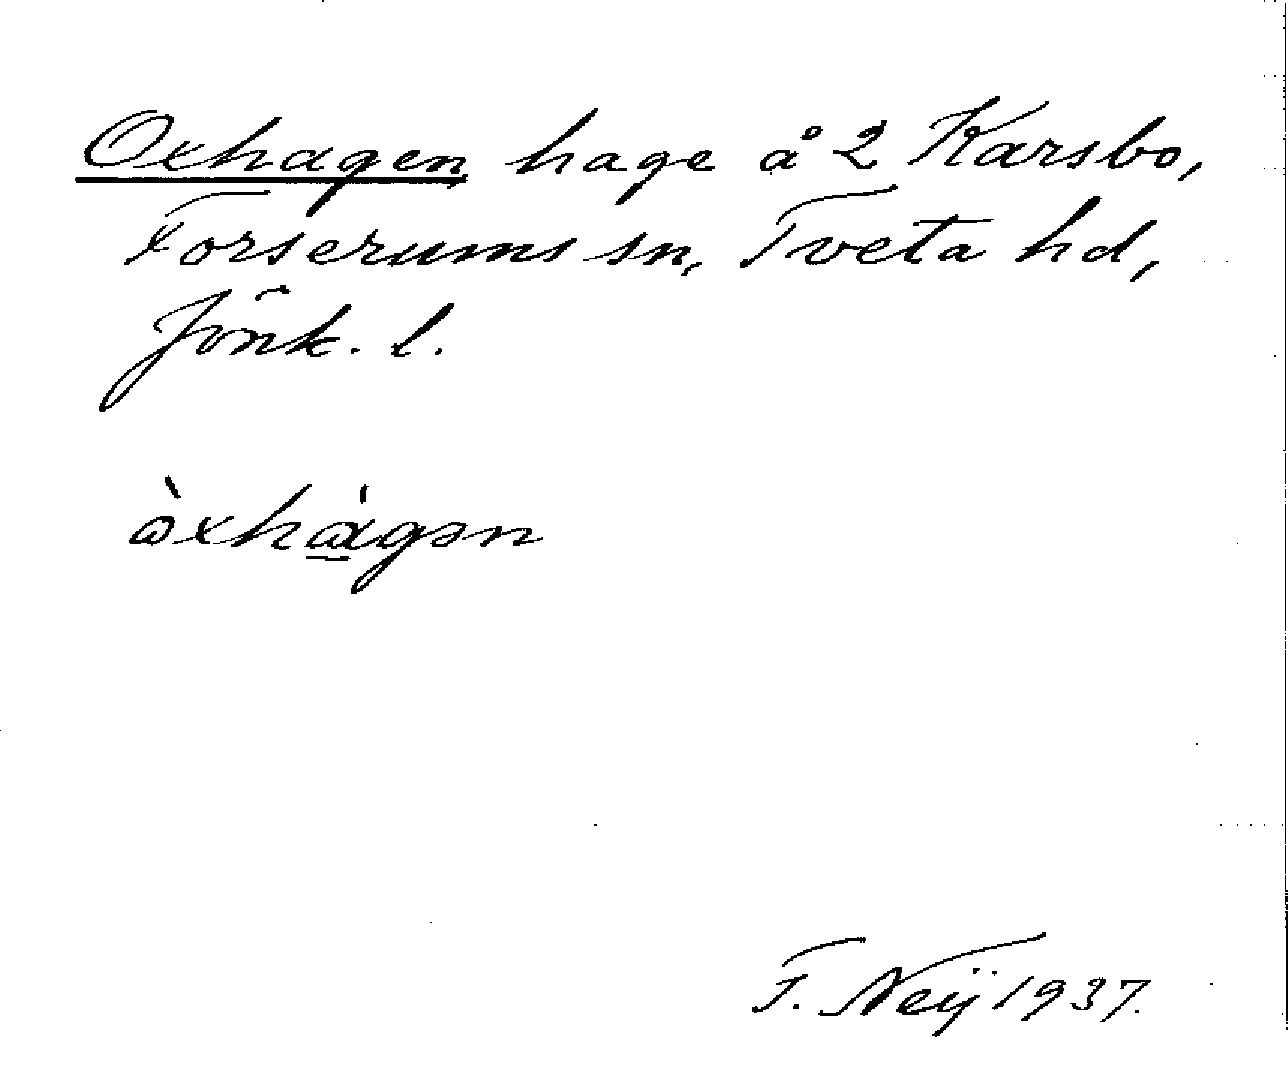 Oxhagen, hage å 2 Karsbo,
Forserums sn, Tveta hd,
Jönk. l.
òxhàgən
F. Neij 1937.